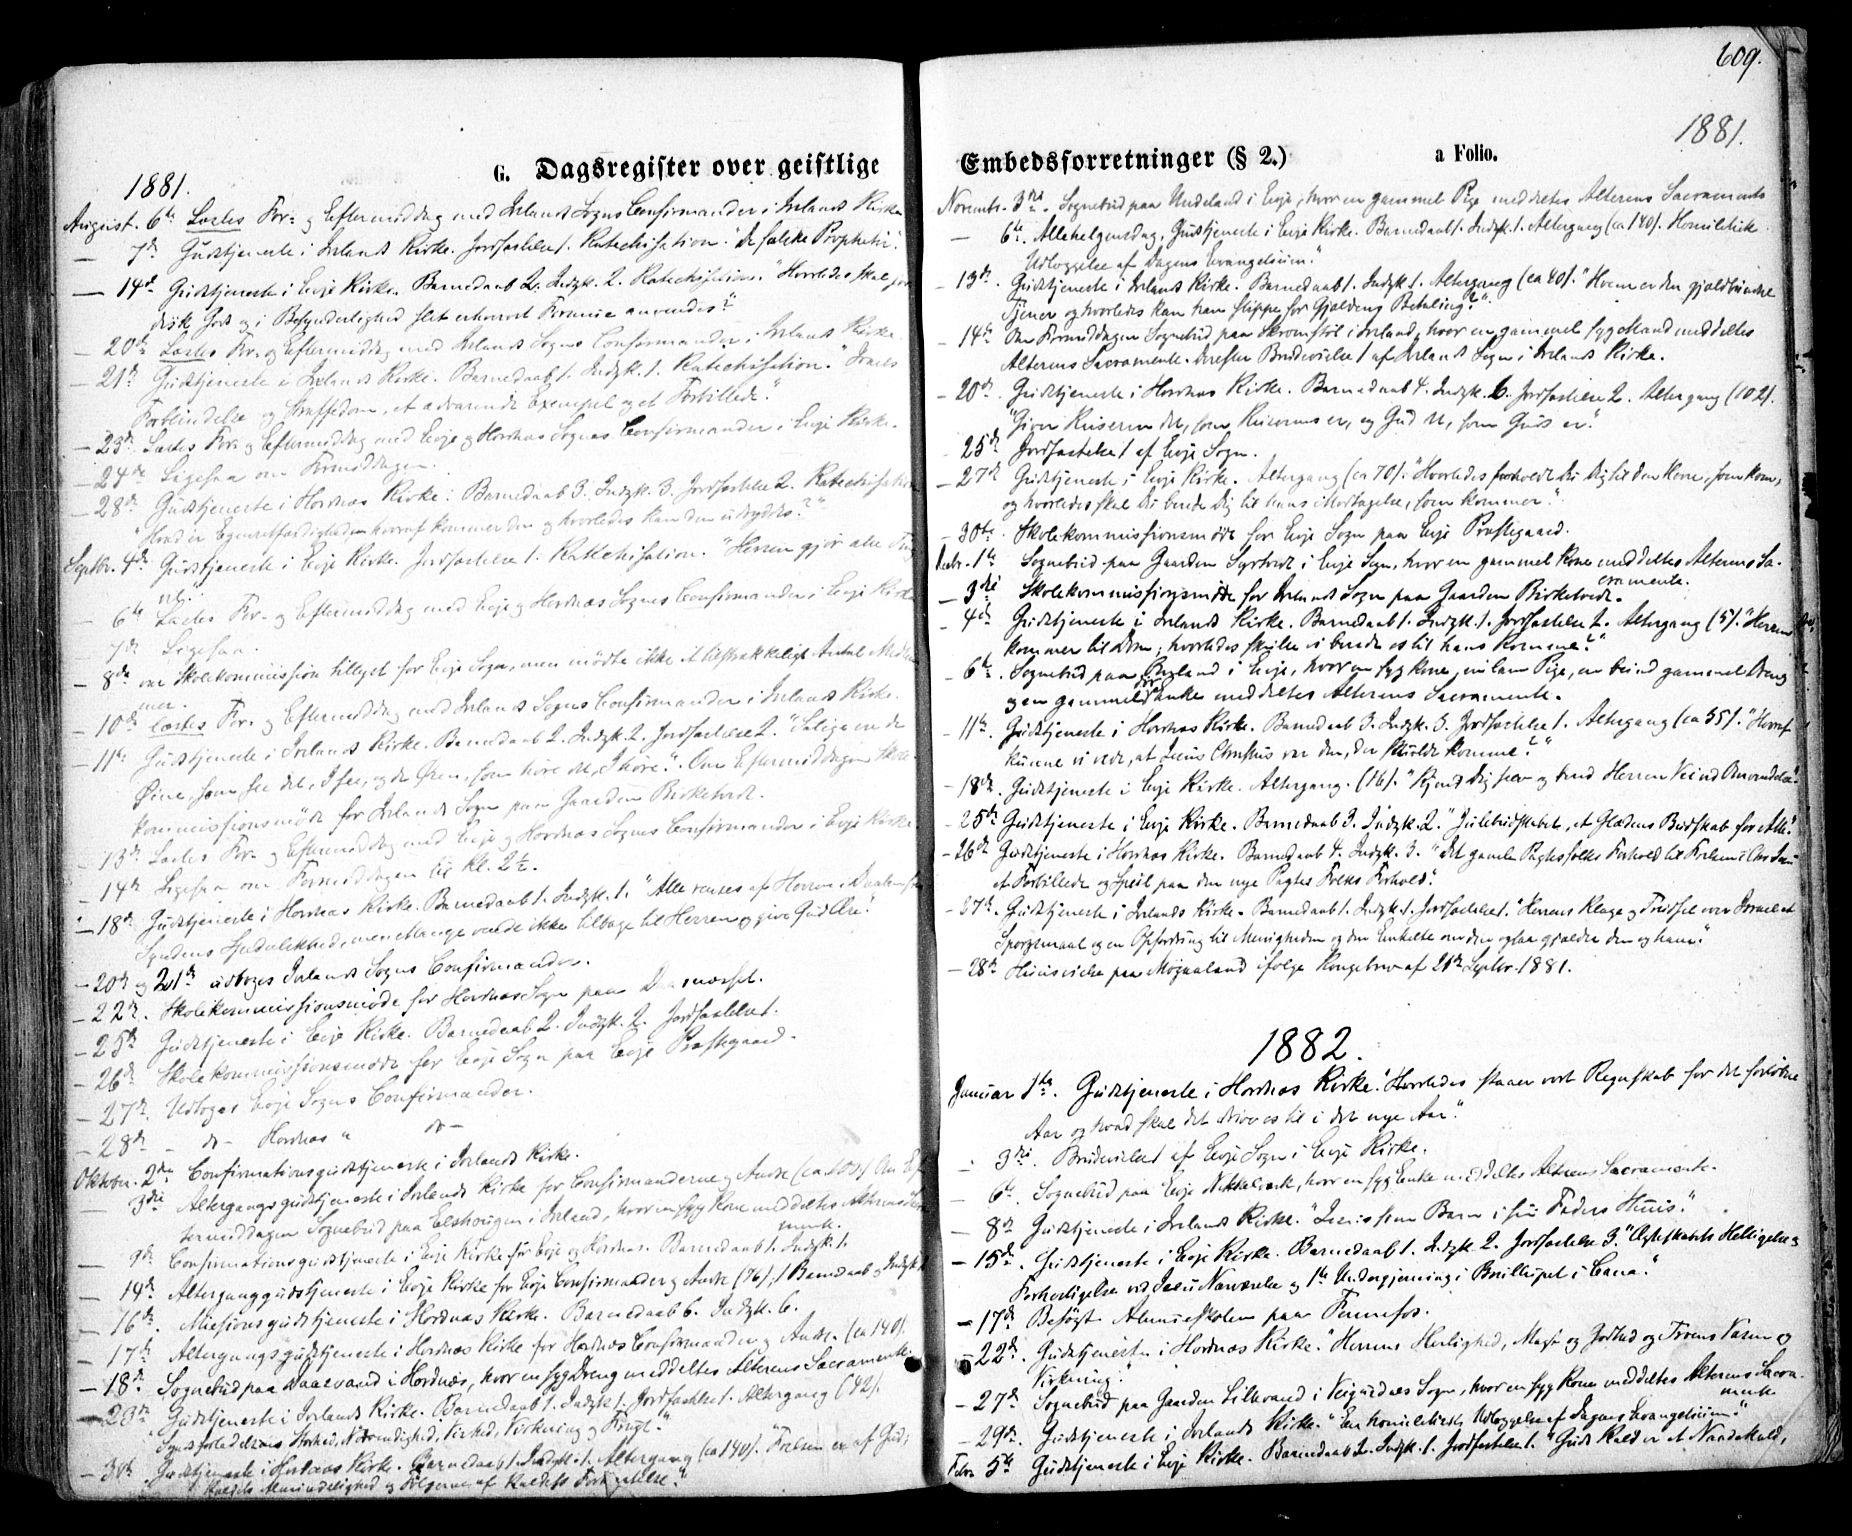 609.
1881.
G. Dagsregister over geistlige Embedsforretninger (§ 2.) a Folio.
1881.
August. 6te Læstes For- og Eftermiddag med Ivelands Sogns Confirmander i Ivelands Kirke
— 7de Gudstjeneste i Ivelands Kirke. Jordfæstelse 1. Katechisation. "De falske Propheter".
— 14de Gudstjeneste i Evje Kirke. Barnedaab 2. Indgk. 2. Katechisation. "Hvorledes skal jor
disk Gods og i Besynderlighed slet erhvervet Formue anvendes?"
— 20de Læstes For- og Eftermiddag med Ivelands Sogns Confirmander i Ivelands Kirke.
— 21de Gudstjeneste i Ivelands Kirke. Barnedaab 1. Indgk. 1. Katechisation. "Israels
Forblindelse og Straffedom, et advarende Exempel og et Forbillede."
— 23de Læstes For- og Eftermiddag med Evje og Hordnæs Sognes Confirmander i Evje Kirke.
— 24de Ligesaa om Formiddagen.
— 28de Gudstjeneste i Hordnæs Kirke. Barnedaab 3. Indgk. 3. Jordfæstelse 2. Katechisation
"Hvad er Egenretfærdigheden hvoraf kommer den og hvorledes kan den udryddes?"
Septbr. 4de Gudstjeneste i Evje Kirke. Jordfæstelse 1. Katechisation. "Herren gjør alle Ting
vel."
— 6te Læstes For- og Eftermiddag med Evje og Hordnæs Sognes Confirmander i Evje Kirke
— 7de Ligesaa.
— 8de var Skolekommission tillyst for Evje Sogn, men mødte ikke et tilstrækkeligt Antal Medlem
mer.
— 10de Læstes For- og Eftermiddag med Ivelands Sogns Confirmander i Ivelands Kirke.
— 11te Gudstjeneste i Ivelands Kirke. Barnedaab 2. Indgk. 2. Jordfæstelse 2. "Salige ere de
Øine, som see det, I see, og de Øren, som høre det, I høre." Om Eftermiddagen Skole
kommissionsmøde for Ivelands Sogn paa Gaarden Birketvedt.
— 13de Læstes For- og Eftermiddag med Evje og Hordnæs Sognes Confirmander i Evje Kirke
— 14de Ligesaa om Formiddagen til Kl. 2½.
— 18de Gudstjeneste i Hordnæs Kirke. Barnedaab 1. Indgk. 1. "Alle renses af Herren i Daaben fra
Syndens Spedalskhed, men Mange vende ikke tilbage til Herren og give Gud Ære."
— 20de og 21de udtoges Ivelands Sogns Confirmander.
— 22de Skolekommissionsmøde for Hordnæs Sogn paa
— 25de Gudstjeneste i Evje Kirke. Barnedaab 2. Indgk. 2. Jordfæstelse 1.
— 26de Skolekommissionsmøde for Evje Sogn paa Evje Præstegaard.
— 27de Udtoges Evje Sogns Confirmander.
— 28de — do — Hordnæs " do —
Oktober. 2den Confirmationsgudstjeneste i Ivelands Kirke.
— 3die Altergangsgudstjeneste i Ivelands Kirke for Confirmanderne og Andre (ca 105.) Om Ef
termiddagen Sognebud paa i Iveland, hvor en syg Kone meddeltes Alterens Sacra
mente.
— 9de Confirmationsgudstjeneste i Evje Kirke for Evje og Hordnæs. Barnedaab 1. Indgk. 1.
— 14de Altergangsgudstjeneste i Evje Kirke for Evje Confirmander og Andre (76), 1 Barnedaab og Indgk. 1
— 16de Missionsgudstjeneste i Hordnæs Kirke. Barnedaab 6. Indgk. 6.
— 17de Altergangsgudstjeneste i Hordnæs Kirke for Hordnæs Confirmander og Andre (ca 140).
— 18de Sognebud paa Naalevand i Hordnæs, hvor en syg Dreng meddeltes Alterens Sacramente.
— 23de Gudstjeneste i Ivelands Kirke. Barnedaab 1. Indgk. 1. Jordfæstelse 1. Altergang (42).
"Syndsforladelsens Storhed, Nødvendighed, Vished, Virkning og Frugt".
— 30te Gudstjeneste i Hordnæs Kirke. Barnedaab 1. Indgk. 1. Altergang (ca 140). "Frelsen er af Gud;
Kaldets Almindelighed og Følgerne af Kaldets Forkastelse."
Novembr. 3die. Sognebud paa Undeland i Evje, hvor en gammel Pige meddeltes Alterens Sacramente
— 6te. Allehelgensdag, Gudstjeneste i Evje Kirke. Barnedaab 1. Indgk. 1. Altergang (ca 140). Homiletisk
Udlæggelse af Dagens Evangelium."
— 13de. Gudstjeneste i Ivelands Kirke. Barnedaab 1. Indgk. 1. Altergang (ca 40). "Hvem er den gjældbundne
Tjener og hvorledes kan han slippe for Gjældens Betaling?"
— 14de Om Formiddagen Sognebud paa i Iveland, hvor en gammel syg Mand meddeltes
Alterens Sacramente. Derefter Brudevielse 1 af Ivelands Sogn i Ivelands Kirke.
— 20de. Gudstjeneste i Hordnæs Kirke. Barnedaab 4. Indgk. 6. Jordfæstelse 2. Altergang (102).
"Giver Keiseren det, som Keiserens er, og Gud det, som Guds er".
— 25de Jordfæstelse 1 af Evje Sogn.
— 27de Gudstjeneste i Evje Kirke. Altergang (ca 70). "Hvorledes forholdt Du Dig til den Herre, som kom,
og hvorledes skal Du berede Dig til hans Modtagelse, som kommer".
— 30te. Skolekommissionsmøde for Evje Sogn paa Evje Præstegaard.
Decbr. 1te Sognebud paa Gaarden Syrtveit i Evje Sogn, hvor en gammel Kone meddeltes Alterens Sa-
cramente.
— 3die Skolekommissionsmøde for Ivelands Sogn paa Gaarden Birketvedt.
— 4de Gudstjeneste i Ivelands Kirke. Barnedaab 1. Indgk. 1. Jordfæstelse 2. Altergang (5). "Herren
kommer til Dom; hvorledes skulle vi berede os til hans Komme?"
— 6te. Sognebud paa Bygland i Evje, hvor en syg Kone, en lam Pige, en blind gammel Dreng
og en gammel Enke meddeltes Alterens Sacramente.
— 11te. Gudstjeneste i Hordnæs Kirke. Barnedaab 3. Indgk. 3. Jordfæstelse 1. Altergang (ca 55). "Hvoraf
kunne vi vide, at Jesus Christus var den, der skulde komme?"
— 18de. Gudstjeneste i Evje Kirke. Altergang. (16). "Kjend Dig selv og bered Herrens Vei ved Omvendelse".
— 25de Gudstjeneste i Evje Kirke. Barnedaab 3. Indgk. 2. "Julebudskabet, et Glædens Budskab for Alle".
— 26de Gudstjeneste i Hordnæs Kirke. Barnedaab 4. Indgk. 3. "Det gamle Pagtesfolks Forhold til Frelsen i Chr. Jesu
et Forbillede og Speil paa den nye Pagtes Folks Forhold".
— 27de. Gudstjeneste i Ivelands Kirke. Barnedaab 1. Indgk. 1. Jordfæstelse 1. "Herrens Klage og Trudsel over Israel et
Spørgsmaal og en Opfordring til Menigheden og den Enkelte om den ogsaa gjælder den og ham".
— 28de Huusvielse paa ifølge Kongebrev af 21de Septbr. 1881.
1882.
Januar 1te. Gudstjeneste i Hordnæs Kirke. "Hvorledes staaer vort Regnskab for det forløbne
Aar og hvad skal det drive os til i det nye Aar".
— 3die. Brudevielse 1 af Evje Sogn i Evje Kirke.
— 6te. Sognebud paa Evje Nikkelværk, hvor en syg Enke meddeltes Alterens Sacramente.
— 8de Gudstjeneste i Ivelands Kirke. "Jesus som Barn i sin Faders Huus."
— 15de. Gudstjeneste i Evje Kirke. Barnedaab 1. Indgk. 2. Jordfæstelse 3. "Ægteskabets Helligelse og
Forherligelse ved Jesu Nærværelse og 1te Undergjerning i Brylluppet i Cana."
— 17de Besøgt Almueskolen paa Fennefos.
— 22de. Gudstjeneste i Hordnæs Kirke. "Herrens Herlighed, Magt og Godhed og Troens Væsen og
Virkning".
— 27de Sognebud paa Gaarden Lillevand i Veigusdals Sogn, hvor en syg Kone meddeltes Alterens Sacra-
mente
— 29de. Gudstjeneste i Ivelands Kirke. "En homiletisk Udlæggelse af Dagens Evangelium."
Febr. 5te Gudstjeneste i Evje Kirke. Barnedaab 2. Indgk. 1. Jordfæstelse 1. "Guds Kald er et Naadekald,